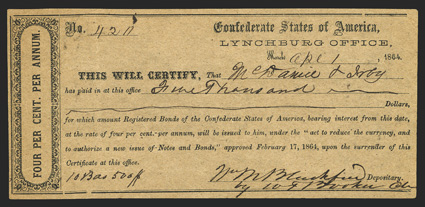 FOUR PER CENT. PER ANNUM.
No. 420
Confederate States of America,
LYNCHBURG OFFICE,
1, 1864.
THIS WILL CERTIFY, That McDaniel & Irby
has paid in at this office Five Thousand
Dollars,
for which amount Registered Bonds of the Confederate States of America, bearing interest from this date,
at the rate of four per cent. per annum, will be issued to him, under the "act to reduce the currency, and
to authorize a new issue of Notes and Bonds," approved February 17, 1864, upon the surrender of this
Certificate at this office.
Wm M Blackford Depositary.
by